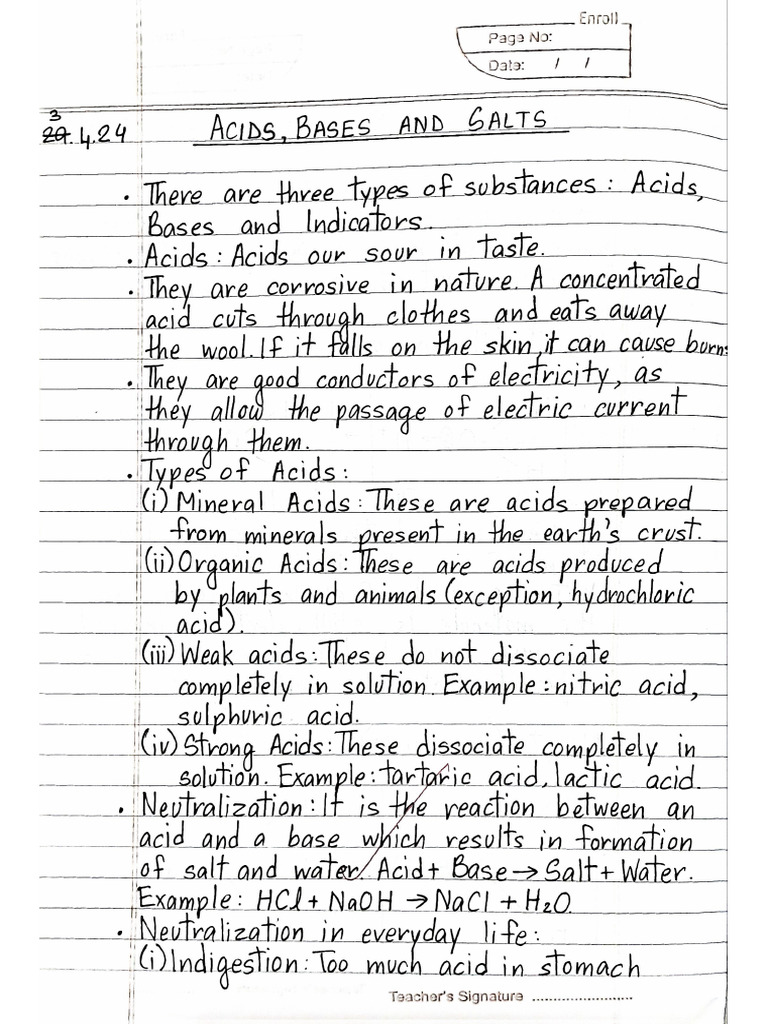 Enroll
Page No:
Date: / /
3
29.4.24 ACIDS, BASES AND SALTS
• There are three types of substances: Acids,
Bases and Indicators.
• Acids: Acids our sour in taste.
• They are corrosive in nature. A concentrated
acid cuts through clothes and eats away
the wool. If it falls on the skin, it can cause burns
• They are good conductors of electricity, as
they allow the passage of electric current
through them.
• Types of Acids:
(i) Mineral Acids: These are acids prepared
from minerals present in the earth's crust.
(ii) Organic Acids: These are acids produced
by plants and animals (exception, hydrochloric
acid).
(iii) Weak acids: These do not dissociate
completely in solution. Example: nitric acid,
sulphuric acid.
(iv) Strong Acids: These dissociate completely in
solution. Example: tartaric acid, lactic acid.
• Neutralization: It is the reaction between an
acid and a base which results in formation
of salt and water. Acid + Base → Salt + Water.
Example: HCl + NaOH → NaCl + H₂O.
• Neutralization in everyday life:
(i) Indigestion: Too much acid in stomach
Teacher's Signature ........................